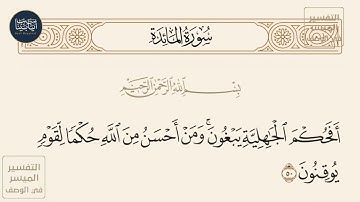 سُورَةُ المَائِدَةِ
بِسْمِ اللَّهِ الرَّحْمَٰنِ الرَّحِيمِ
أَفَحُكْمَ الْجَٰهِلِيَّةِ يَبْغُونَ ۚ وَمَنْ أَحْسَنُ مِنَ اللَّهِ حُكْمًا لِّقَوْمٍ
يُوقِنُونَ ٥٠
التفسير
الميسر
في الوصف
التفسير
الميسر
في الوصف